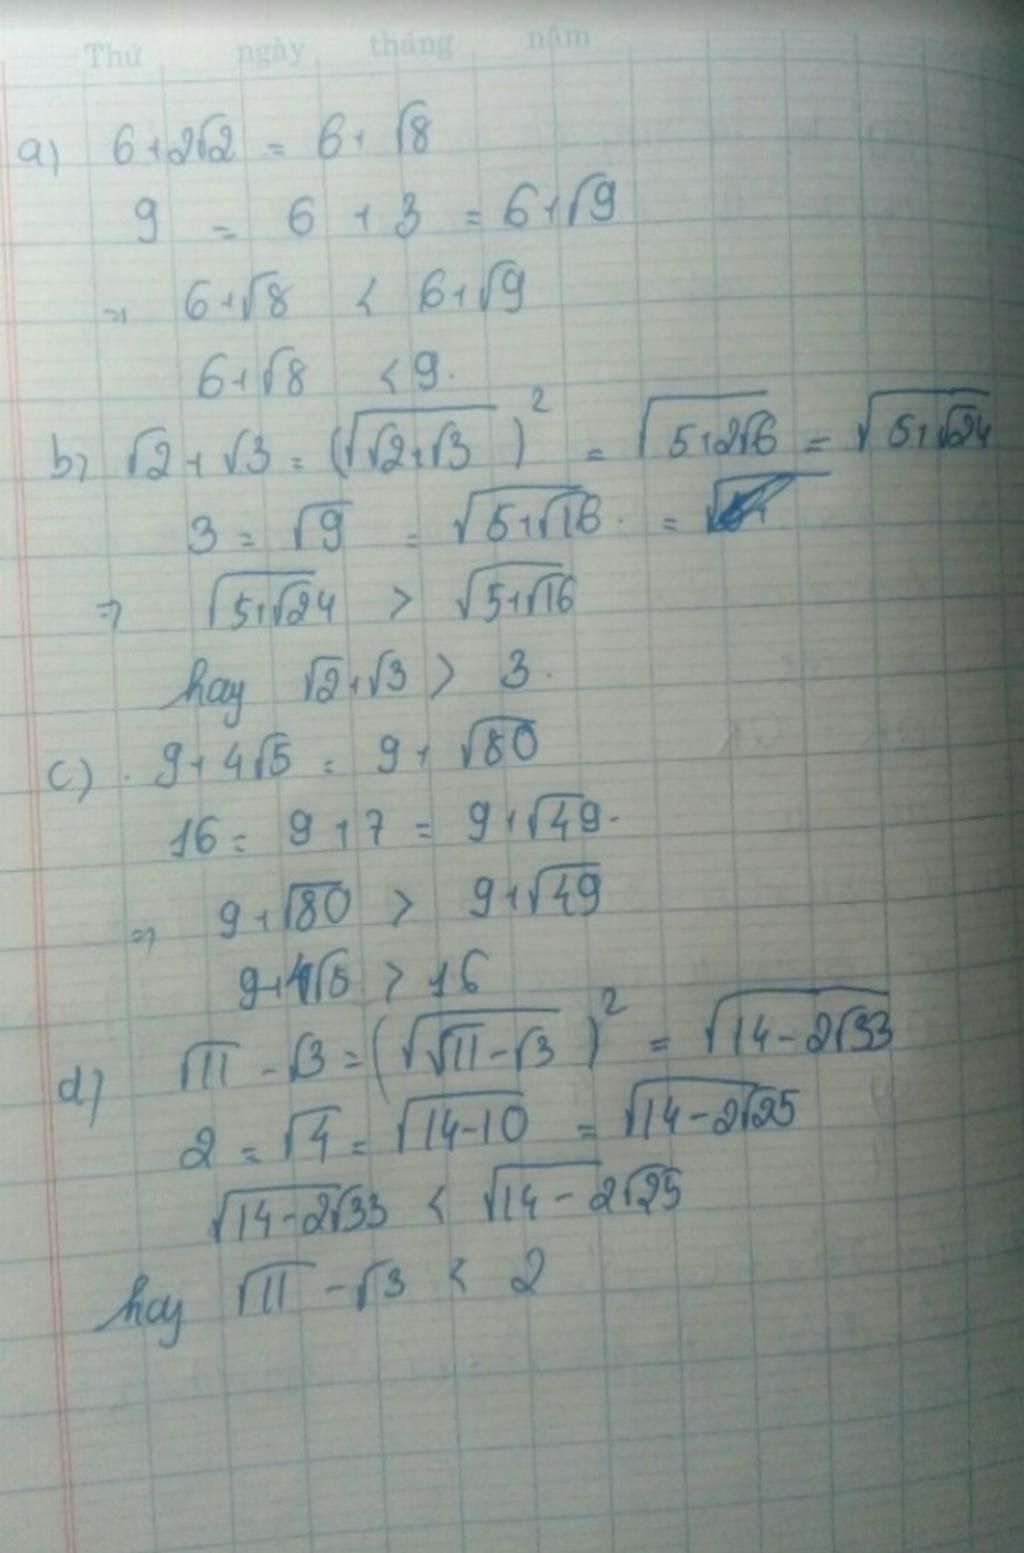 Thứ ngày tháng năm
a) 6+2√2 = 6+√8
9 = 6 + 3 = 6+√9
⇒ 6+√8 < 6+√9
6+√8 < 9.
b) √2+√3 = (√(√2+√3))² = √(5+2√6) = √(5+√24)
3 = √9 = √(5+√16). =
⇒ √(5+√24) > √(5+√16)
hay √2+√3 > 3.
c) 9+4√5 = 9+√80
16 = 9+7 = 9+√49.
⇒ 9+√80 > 9+√49
9+4√5 > 16
d) √11-√3 = (√(√11-√3))² = √(14-2√33)
2 = √4 = √(14-10) = √(14-2√25)
√(14-2√33) < √(14-2√25)
hay √11-√3 < 2